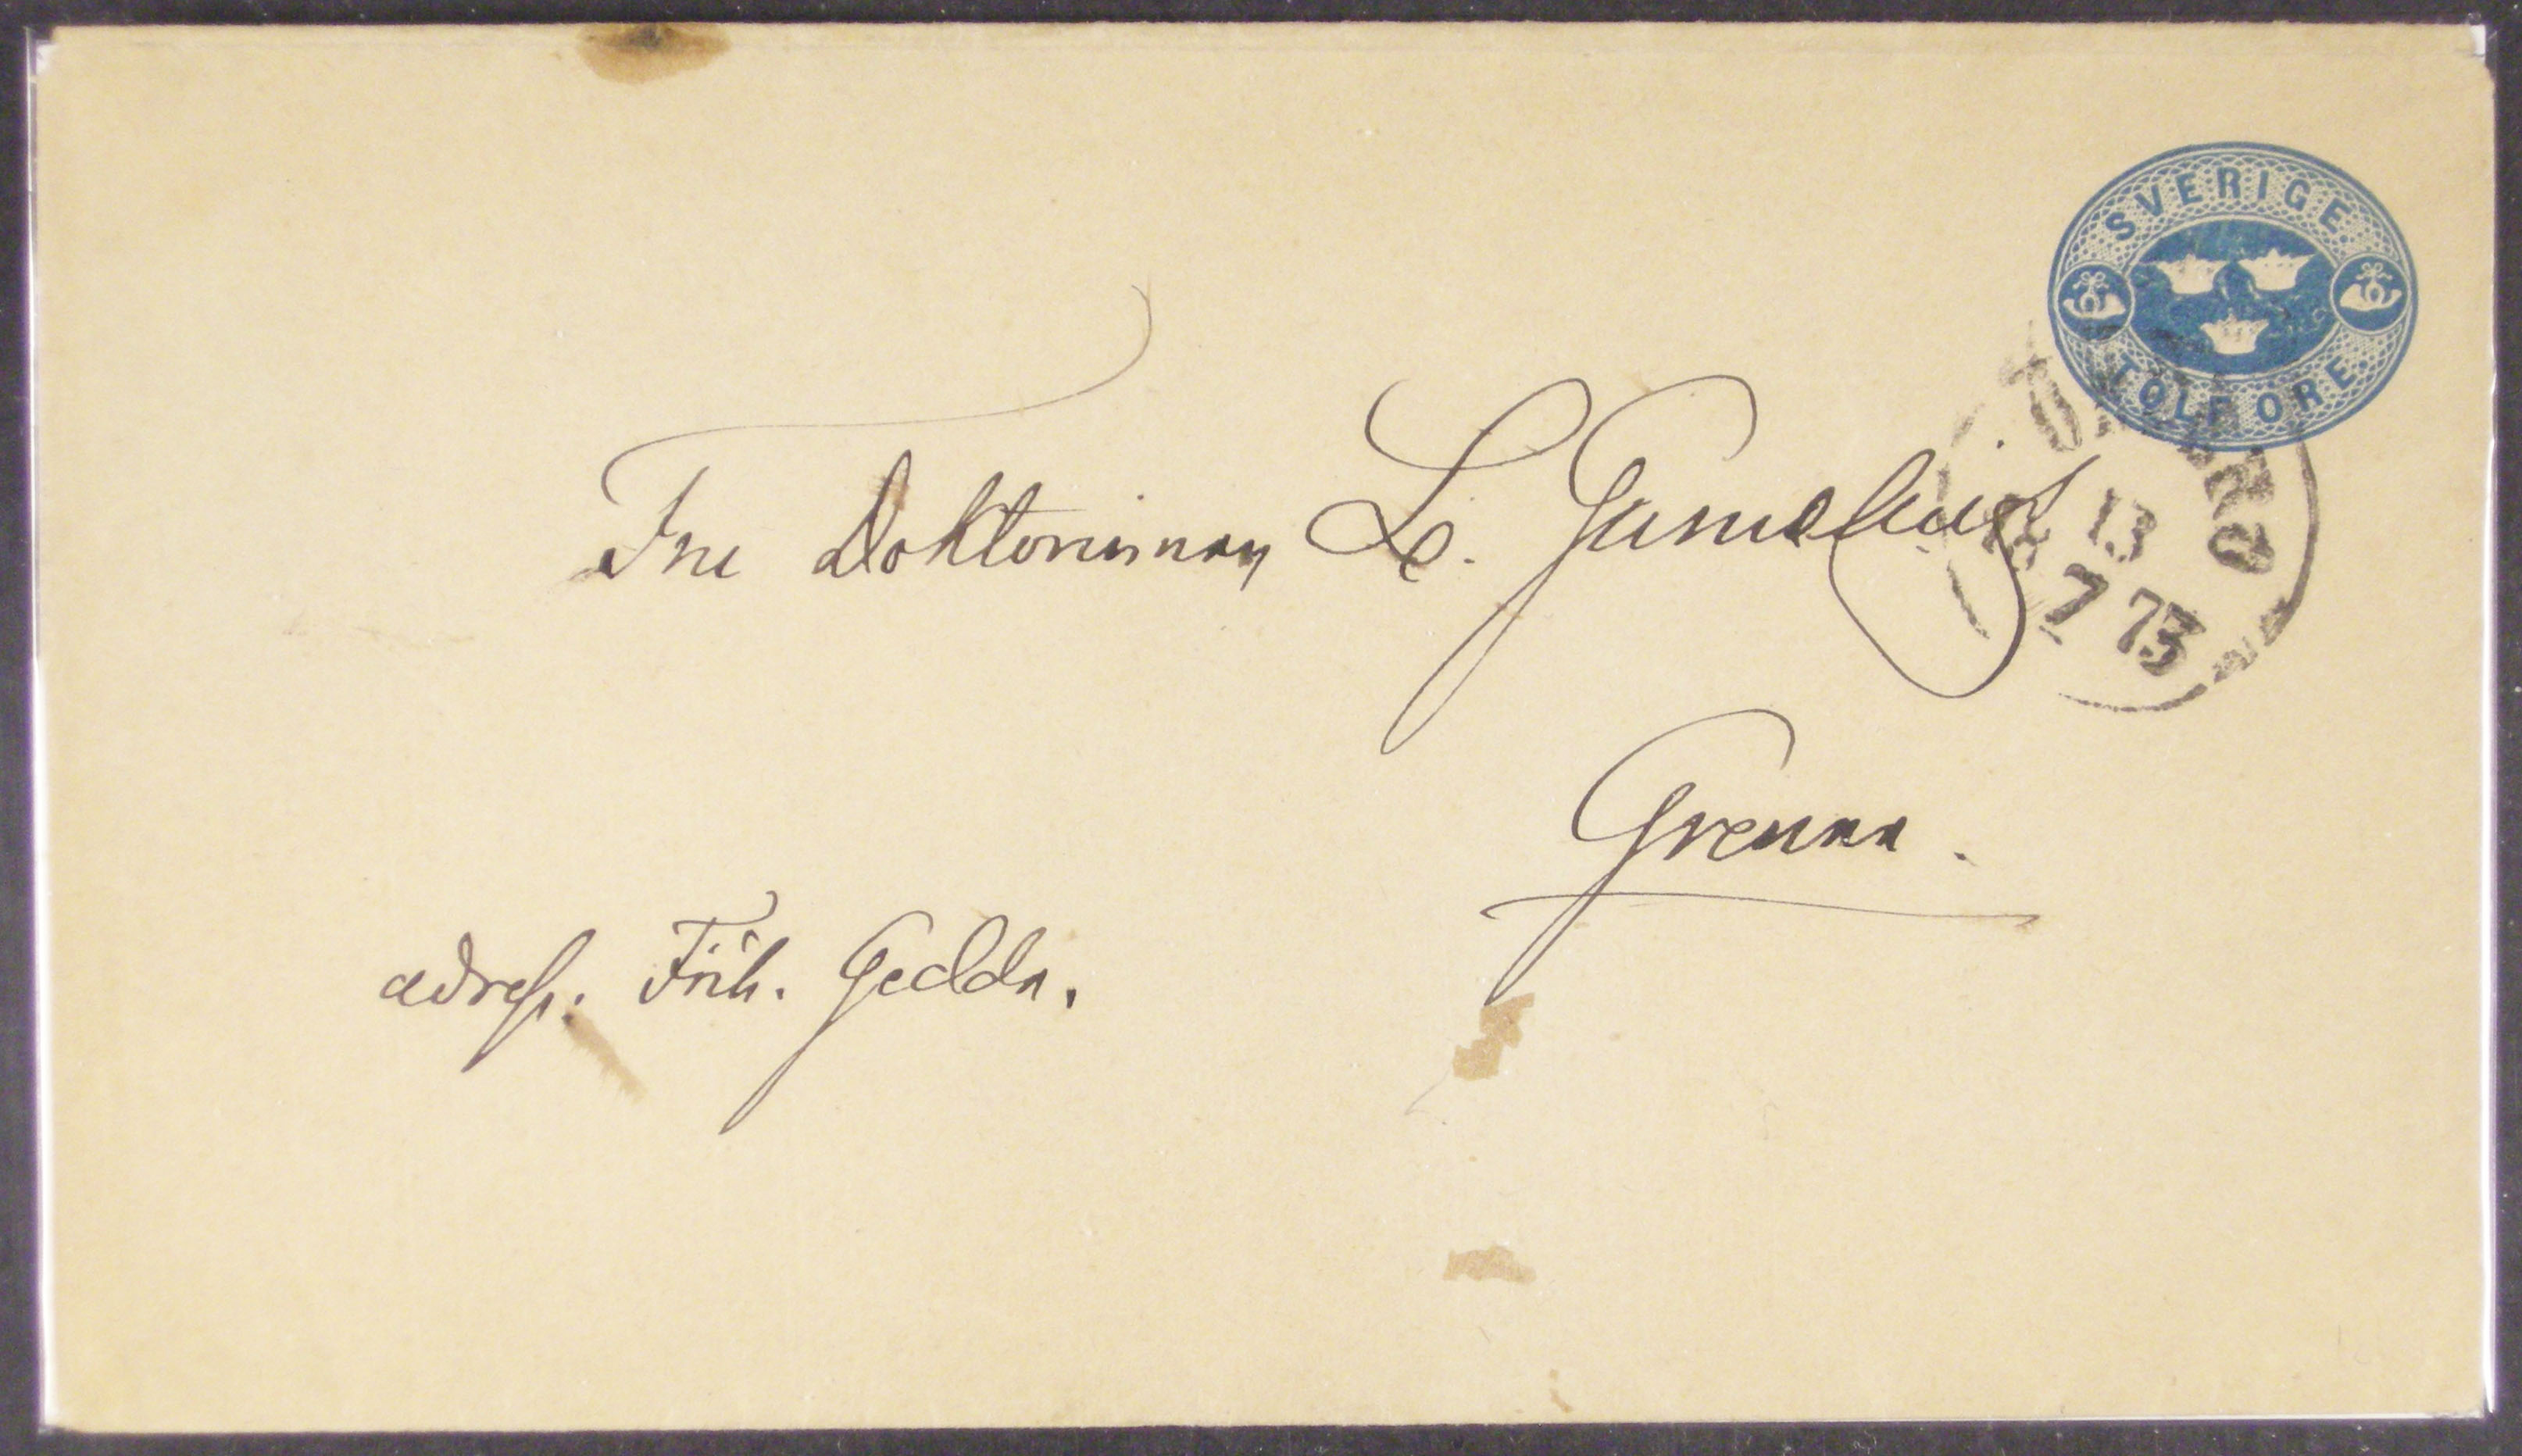 SVERIGE.
TOLF ÖRE.
13
7 73
Fru Doktorinnan L. Gumælius
Grenna.
adress. Frih. Gedda.